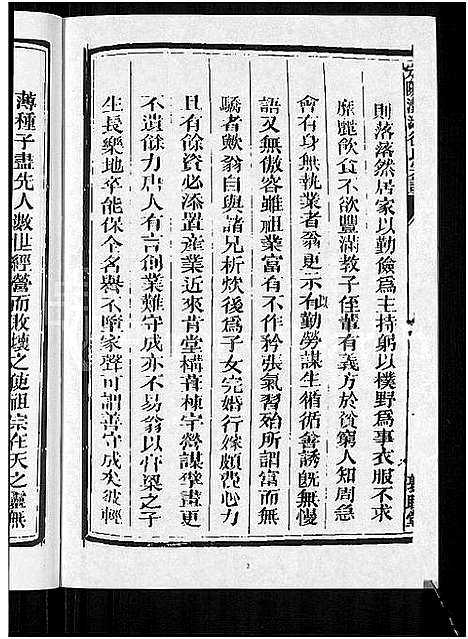 則落落然居家以勤儉爲主持躬以樸野爲事衣服不求
靡麗飲食不欲豐滿教子侄輩有義方於貧窮人知周急
會有身無執業者翁更示以有勤勞謀生循循善誘旣無慢
語又無傲容雖祖業富有不作矜張氣習殆所謂富而無
驕者歟翁自與諸兄析炊後爲子女完婚行嫁頗費心力
且有餘資必添置産業近來肯堂構葺棟宇勞謀擘畫更
不遺餘力唐人有言創業難守成亦不易翁以膏粱之子
生長樂地卒能保全名譽不墮家聲可謂善守成矣彼輕
薄種子盡先人數世經營而敗壞之使祖宗在天之靈無